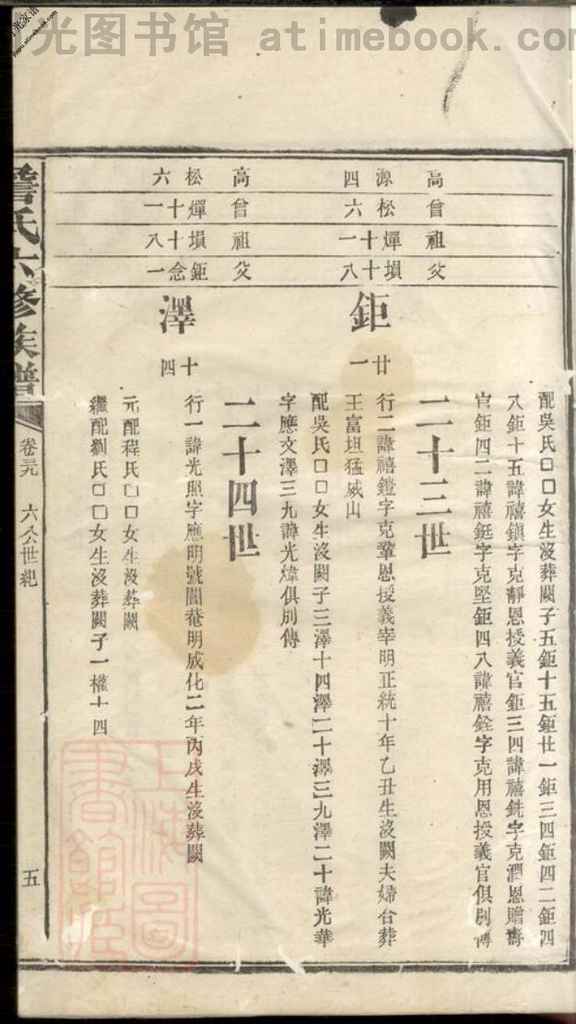 光图书馆 atimebook.com
高 源四
曾 松六
祖 燀十一
父 塤十八
高 松六
曾 燀十一
祖 塤十八
父 鉅念一
配吳氏口口女生沒葬闕子五鉅十五鉅廿一鉅三四鉅四二鉅四
八鉅十五諱禧鎮字克靜恩授義官鉅三四諱禧銑字克潤恩贈壽
官鉅四二諱禧鋌字克堅鉅四八諱禧銓字克用恩授義官俱別傳
二十三世
鉅廿一
行二諱禧鎧字克鞏恩授義宰明正統十年乙丑生沒闕夫婦合葬
王富坦猛威山
配吳氏口口女生沒葬闕子三澤十四澤二十澤三九澤二十諱光華
字應文澤三九諱光煒俱別傳
二十四世
澤十四
行一諱光照字應明號閒菴明成化二年丙戌生沒葬闕
元配程氏口口女生沒葬闕
繼配劉氏口口女生沒葬闕子一權十四
詹氏六修族譜
卷三九 六公世紀
五
上海圖書館藏